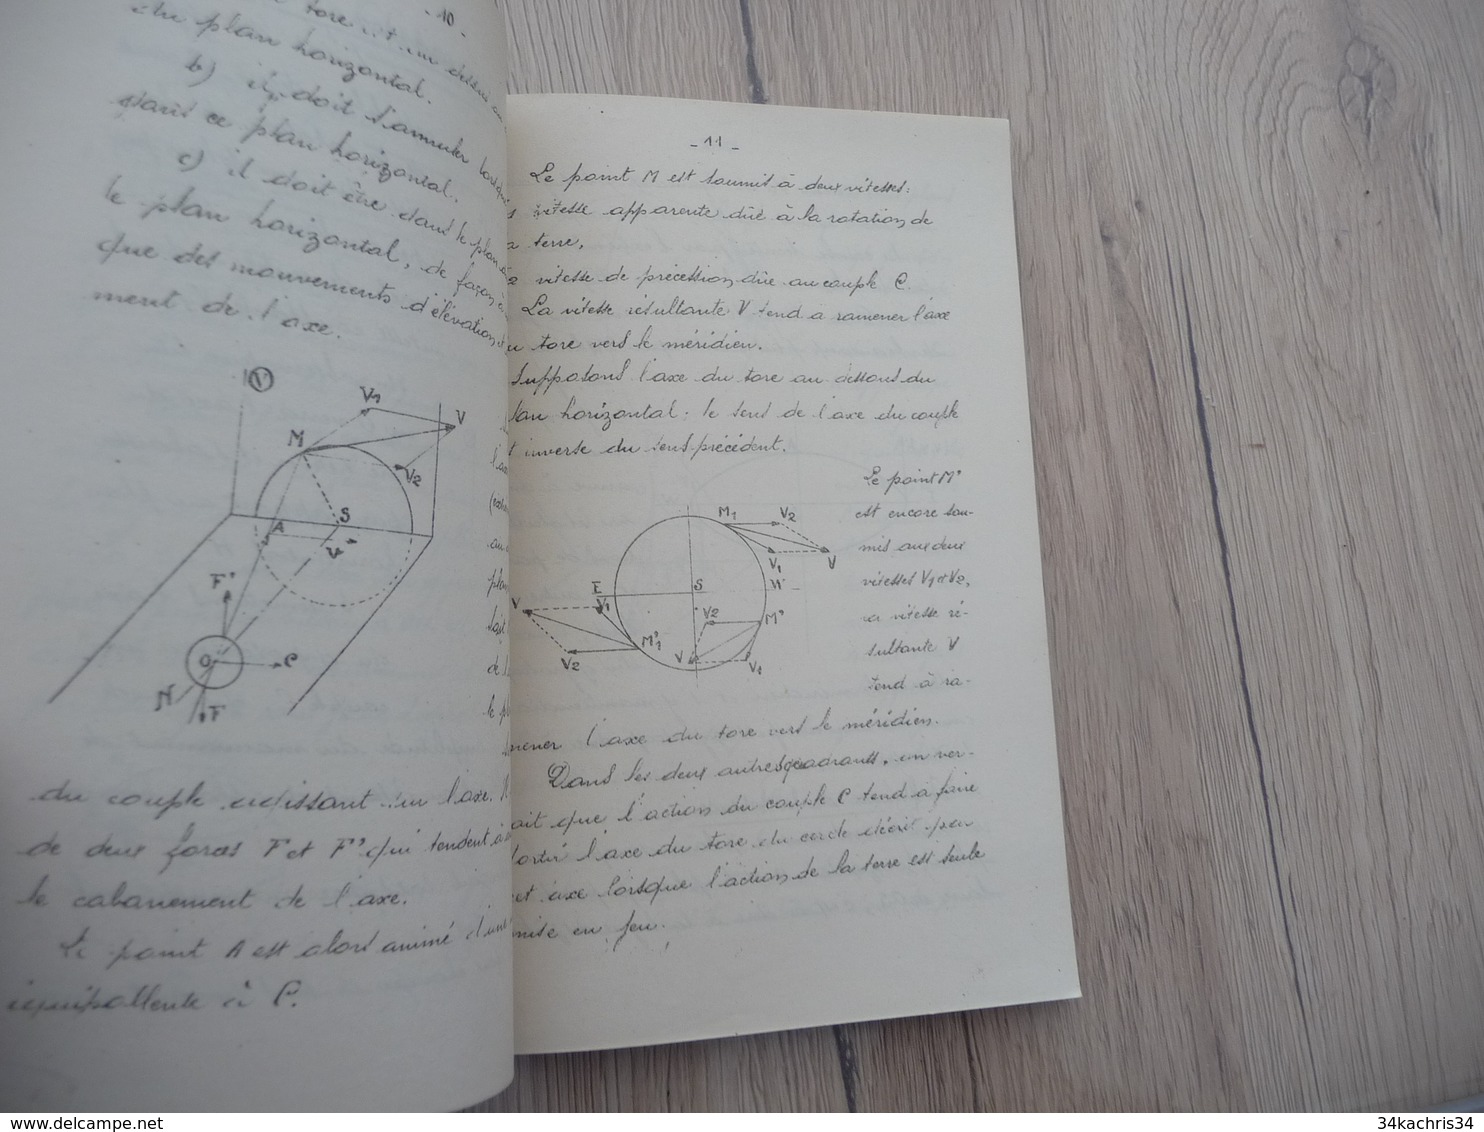 - 10 -
du plan horizontal.
b) il doit s'annuler lorsque
dans ce plan horizontal.
c) il doit être dans le plan
le plan horizontal, de façon à
que des mouvements d'élévation
ment de l'axe.
V
V1
V
M
V2
A
S
F'
O
C
N
F
du couple agissant sur l'axe.
de deux forces F et F' qui tendent à
le cabanement de l'axe.
Le point A est alors animé d'une
équipollente à C.
- 11 -
Le point M est soumis à deux vitesses:
vitesse apparente dûe à la rotation de
a terre,
2 vitesse de précession dûe au couple C.
La vitesse résultante V tend a ramener l'axe
u tore vers le méridien.
Supposons l'axe du tore au dessous du
lan horizontal: le sens de l'axe du couple
t inverse du sens précédent.
Le point M'
est encore sou-
mis aux deux
vitesses V1 et V2,
la vitesse ré-
sultante V
tend à ra-
M1
V2
V1
V
E
S
W
V
V1
V2
M'
M'1
V2
V
V1
mener l'axe du tore vers le méridien.
Dans les deux autres quadrants, on ver-
ait que l'action du couple C tend à faire
sortir l'axe du tore du cercle décrit par
et axe lorsque l'action de la terre est seule
mise en jeu.
delcampe.net
34kachris34